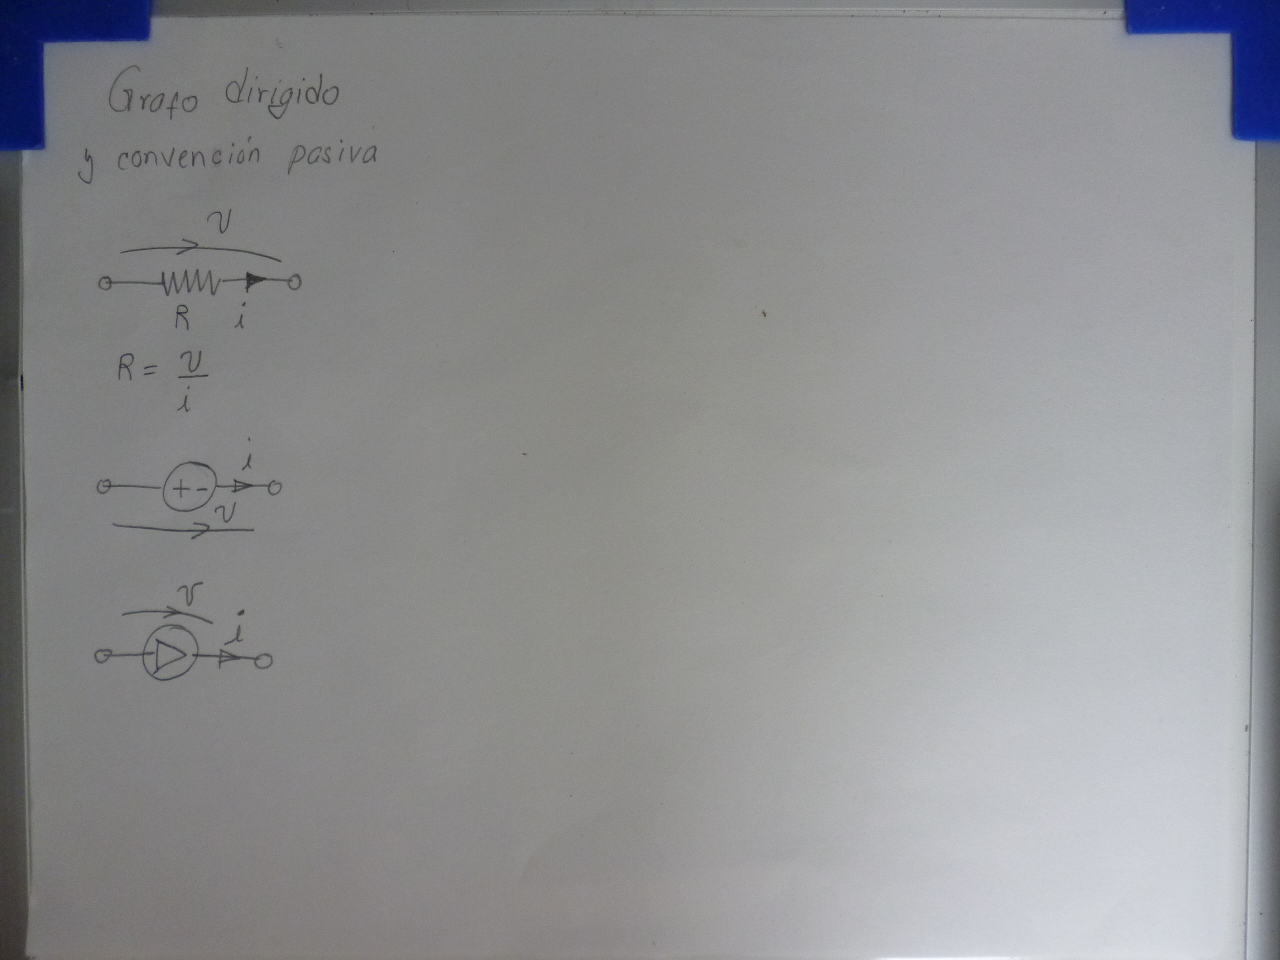 Grafo dirigido
y convención pasiva
v
R i
R = v
i
i
+ -
v
v
i